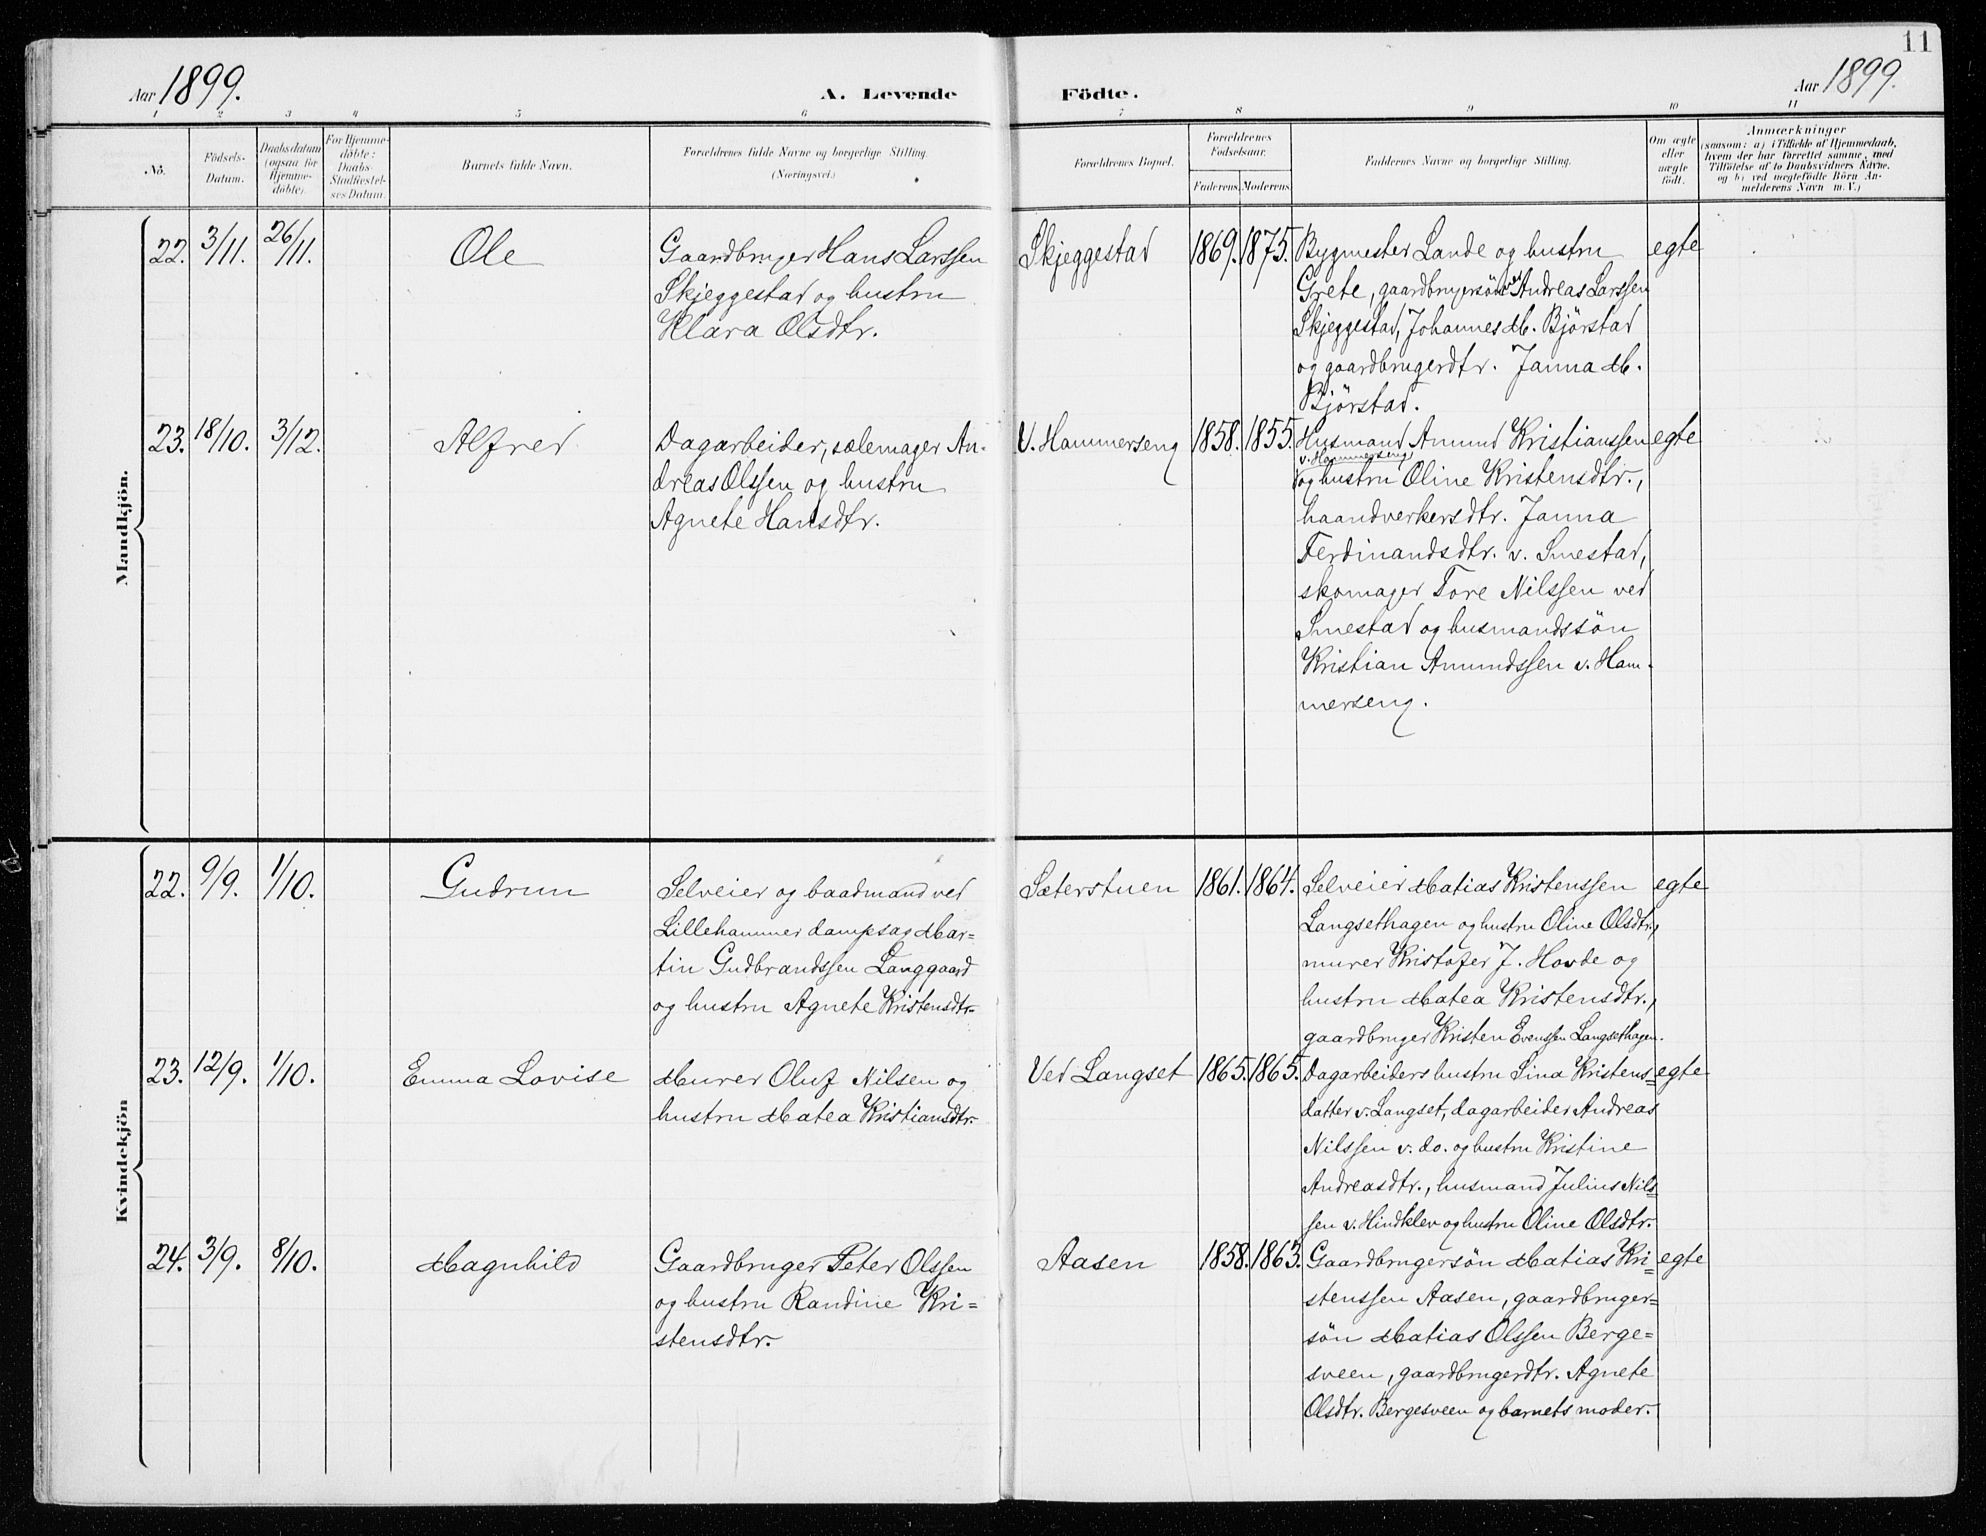 11
Aar 1899.
A. Levende Födte.
Aar 1899.
1 2 3 4 5 6 7 8 9 10 11
No.
Födsels-
Datum.
Daabsdatum
(ogsaa for
Hjemme-
döbte).
For Hjemme-
döbte:
Daabs-
Stadfæstel-
ses Datum.
Barnets fulde Navn.
Forældrenes fulde Navne og borgerlige Stilling.
(Næringsvei.)
Forældrenes Bopæl.
Forældrenes
Födselsaar.
Faderens. Moderens.
Faddernes Navne og borgerlige Stilling.
Om ægte
eller
uægte
födt.
Anmærkninger
(saasom: a) i Tilfælde af Hjemmedaab,
hvem der har forrettet samme, med
Tilföielse af to Daabsvidners Navne.
og b) ved uægtefödte Börn An-
melderens Navn m. V.)
Mandkjön.
22. 3/11. 26/11. Ole
Gaardbruger Hans Larssen
Skjeggestad og hustru
Klara Olsdtr.
Skjeggestad 1869. 1875.
Bygmester Lande og hustru
Grete, gaardbrugersön Andreas Larssen
Skjeggestad, Johannes M. Björstad
og gaardbrugerdtr. Janna M.
Björstad.
egte
23. 18/10. 3/12. Alfred
Dagarbeider, sælemager An-
dreas Olssen og hustru
Agnete Hansdtr.
V. Hammerseng 1858. 1855.
Husmand Amund Kristianssen
v. Hammerseng
og hustru Oline Kristensdtr.,
haandverkersdtr. Janna
Ferdinandsdtr. v. Smestad,
skomager Tore Nilssen ved
Smestad og husmandssön
Kristian Amundssen v. Ham-
merseng.
egte
Kvindekjön
22. 9/9. 1/10. Gudrun
Selveier og baadmand ved
Lillehammer dampsag Mar-
tin Gudbrandssen Langgaard
og hustru Agnete Kristensdtr.
Sæterstuen 1861. 1864.
Selveier Matias Kristenssen
Langsethagen og hustru Oline Olsdtr.,
murer Kristofer J. Hovde og
hustru Matea Kristensdtr.,
gaardbruger Kristen Evenssen Langsethagen.
egte
23. 12/9. 1/10. Emma Lovise
Murer Oluf Nilsen og
hustru Matea Kristiansdtr.
Ved Langset 1865. 1865.
Dagarbeiders hustru Sina Kristens=
datter v. Langset, dagarbeider Andreas
Nilssen v. do. og hustru Kristine
Andreasdtr., husmand Julius Nils=
sen v. Hindklev og hustru Oline Olsdtr.
egte
24. 3/9. 8/10. Magnhild
Gaardbruger Peter Olssen
og hustru Randine Kri=
stensdtr.
Aasen 1858. 1863.
Gaardbrugersön Matias Kri=
stenssen Aasen, gaardbruger=
sön Matias Olssen Berge=
sveen, gaardbrugerdtr. Agnete
Olsdtr. Bergesveen og barnets moder.
egte